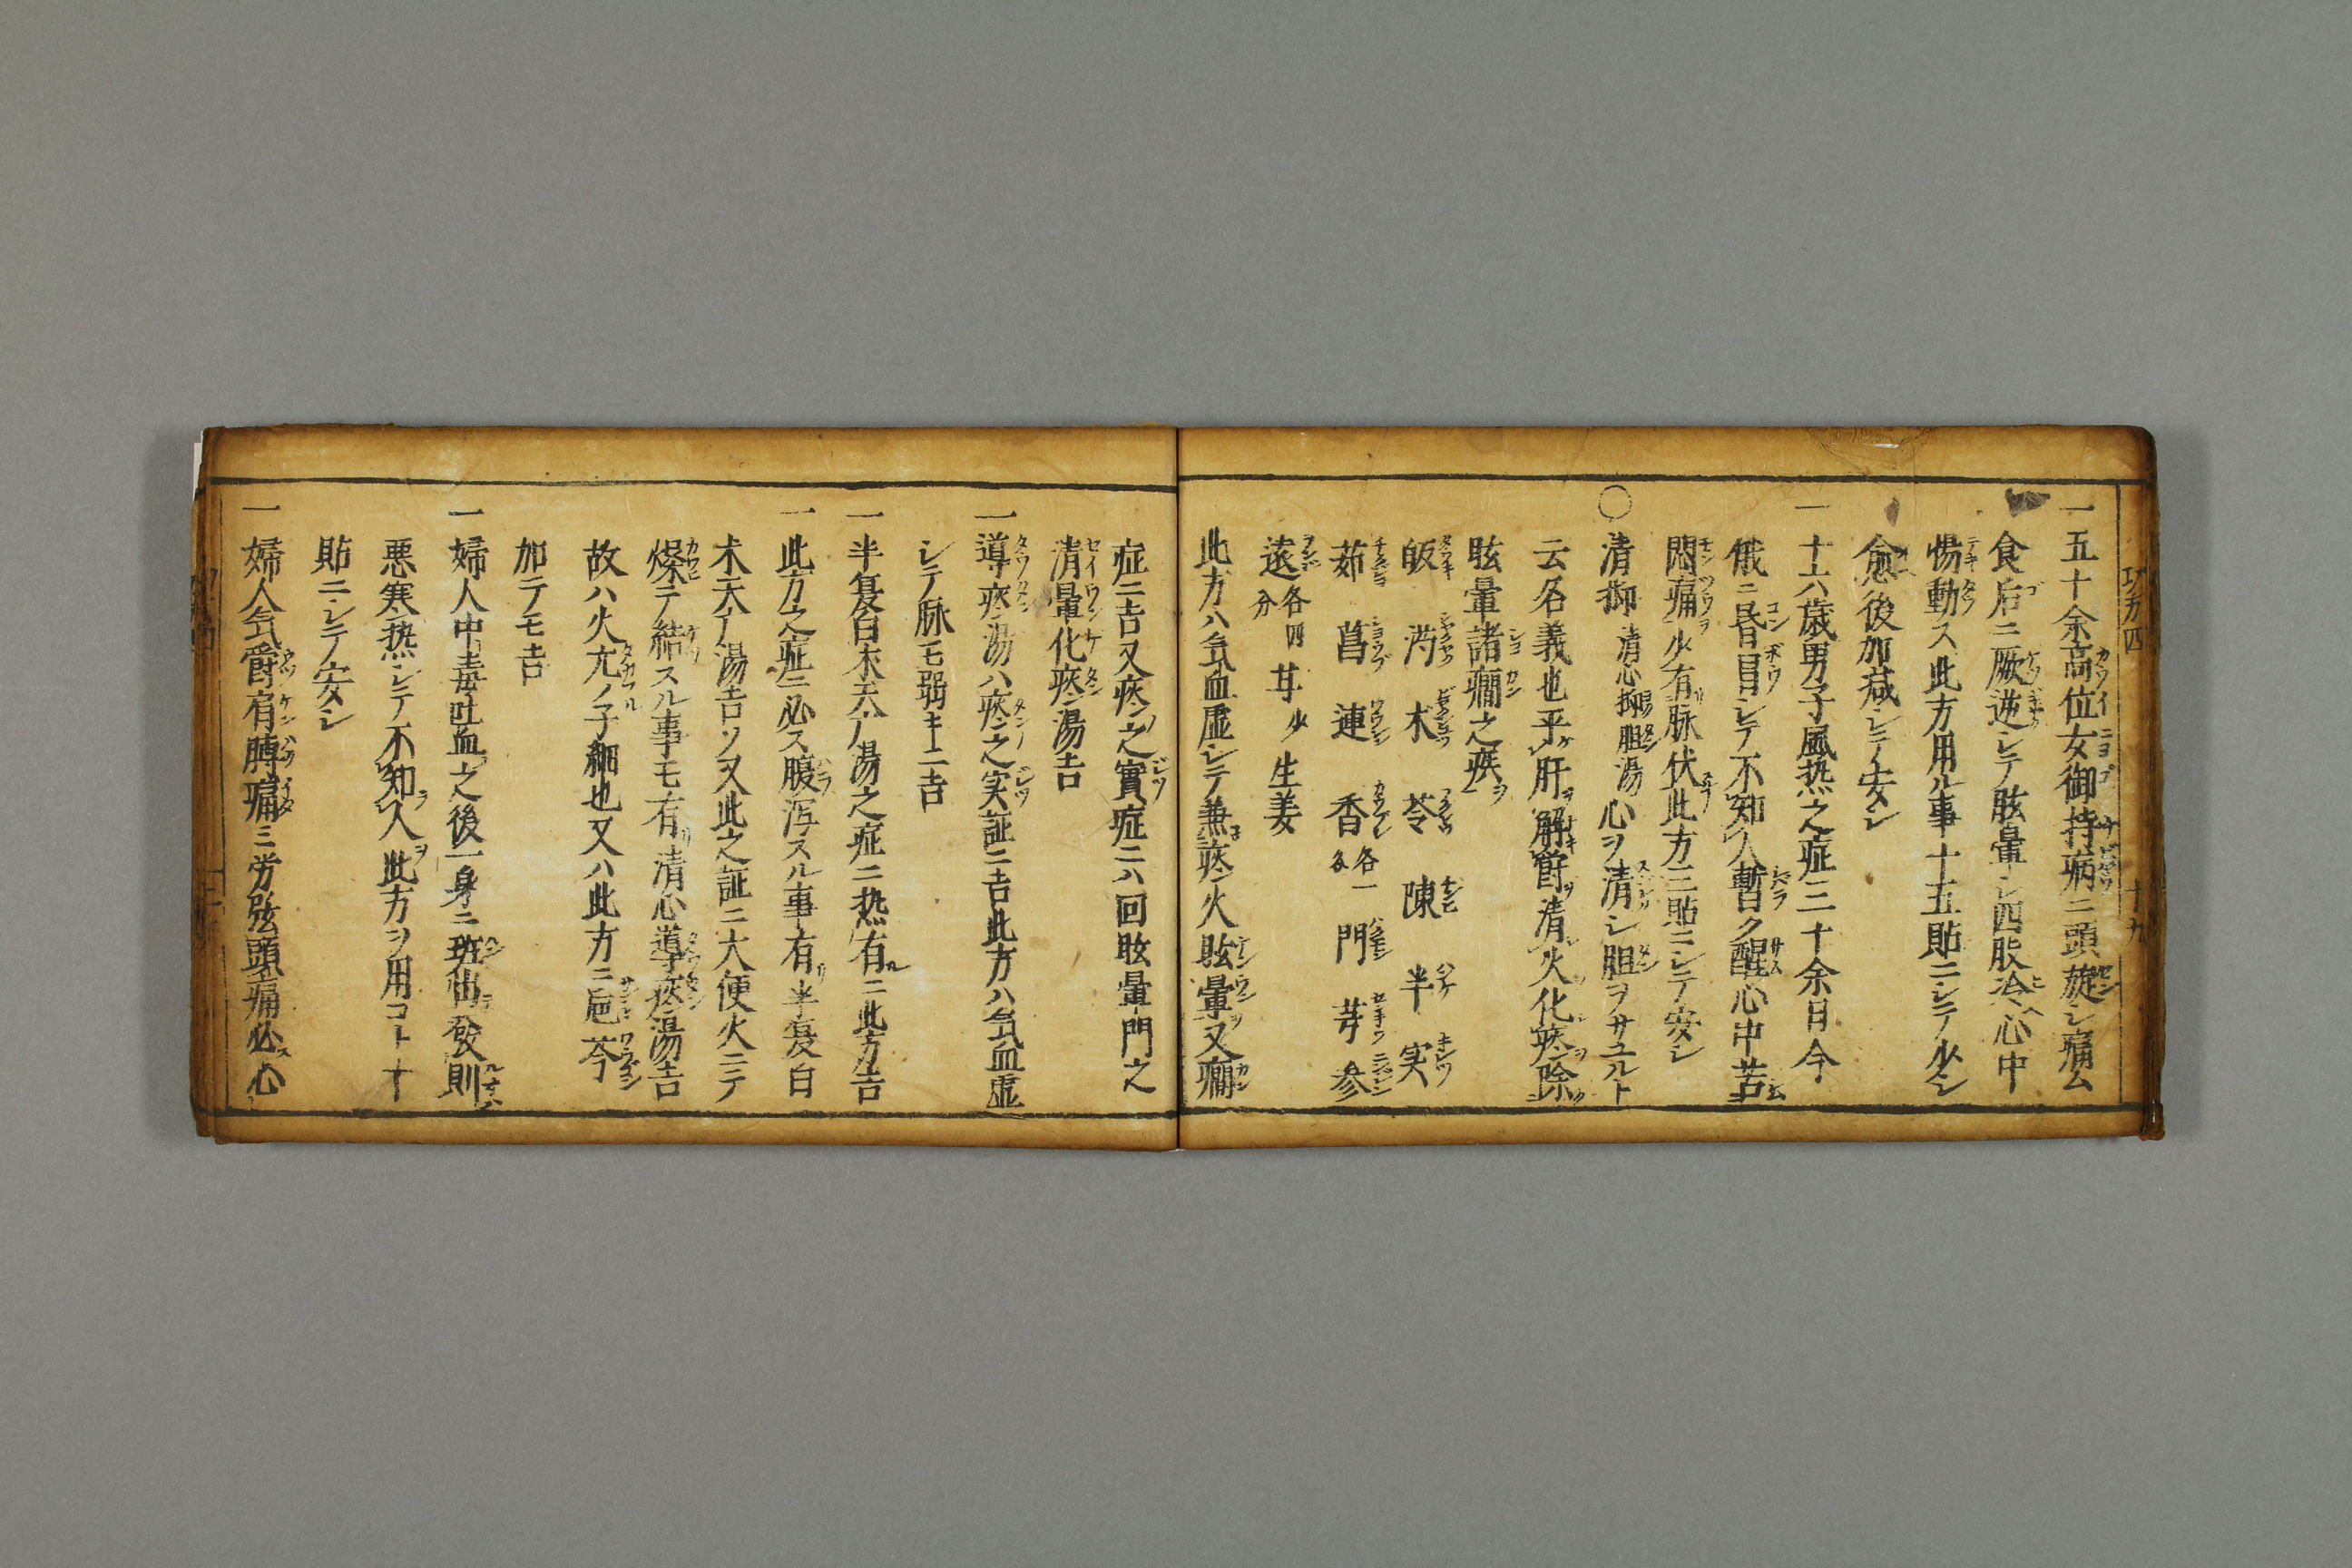 一五十余高位女御持病ニ頭旋シ痛ム
食后ニ厥逆シテ眩暈シ四肢冷ヘ心中
惕動ス此方用ル事十五貼ニシテ少シ
愈後加减シテ安シ
一十六歳男子風热之症三十余日今
俄ニ昏目シテ不知人暫ク醒心中苦
悶痛少有脉伏此方三貼ニシテ安シ
○清抑 清心抑胆湯 心ヲ清シ胆ヲサユルト
云名義也平肝解欝清火化痰除
眩暈諸癇之疾
皈 芍 朮 苓 陳 半 実
茹 菖 連 香各一 門 芽 参
遠各四分 甘少 生姜
此方ハ気血虚シテ兼痰火眩暈又癇
症ニ吉又痰之實症ニハ回眩暈門之
清暈化痰湯吉
一導痰湯ハ痰之実証ニ吉此方ハ気血虚
シテ脉モ弱キニ吉
一半夏白朮天广湯之症ニ热有ニ此方吉
一此方之症ニ必ス腹泻スル事有半夏白
朮天广湯吉ソ又此之証ニ大便火ニテ
燥テ結スル事モ有清心導痰湯吉
故ハ火亢ノ子細也又ハ此方ニ芩
加テモ吉
一婦人中毒吐血之後一身ニ班出發則
悪寒热シテ不知人此方ヲ用コト十
貼ニシテ安シ
一婦人気欝肩膊痛ミ労眩頭痛必心